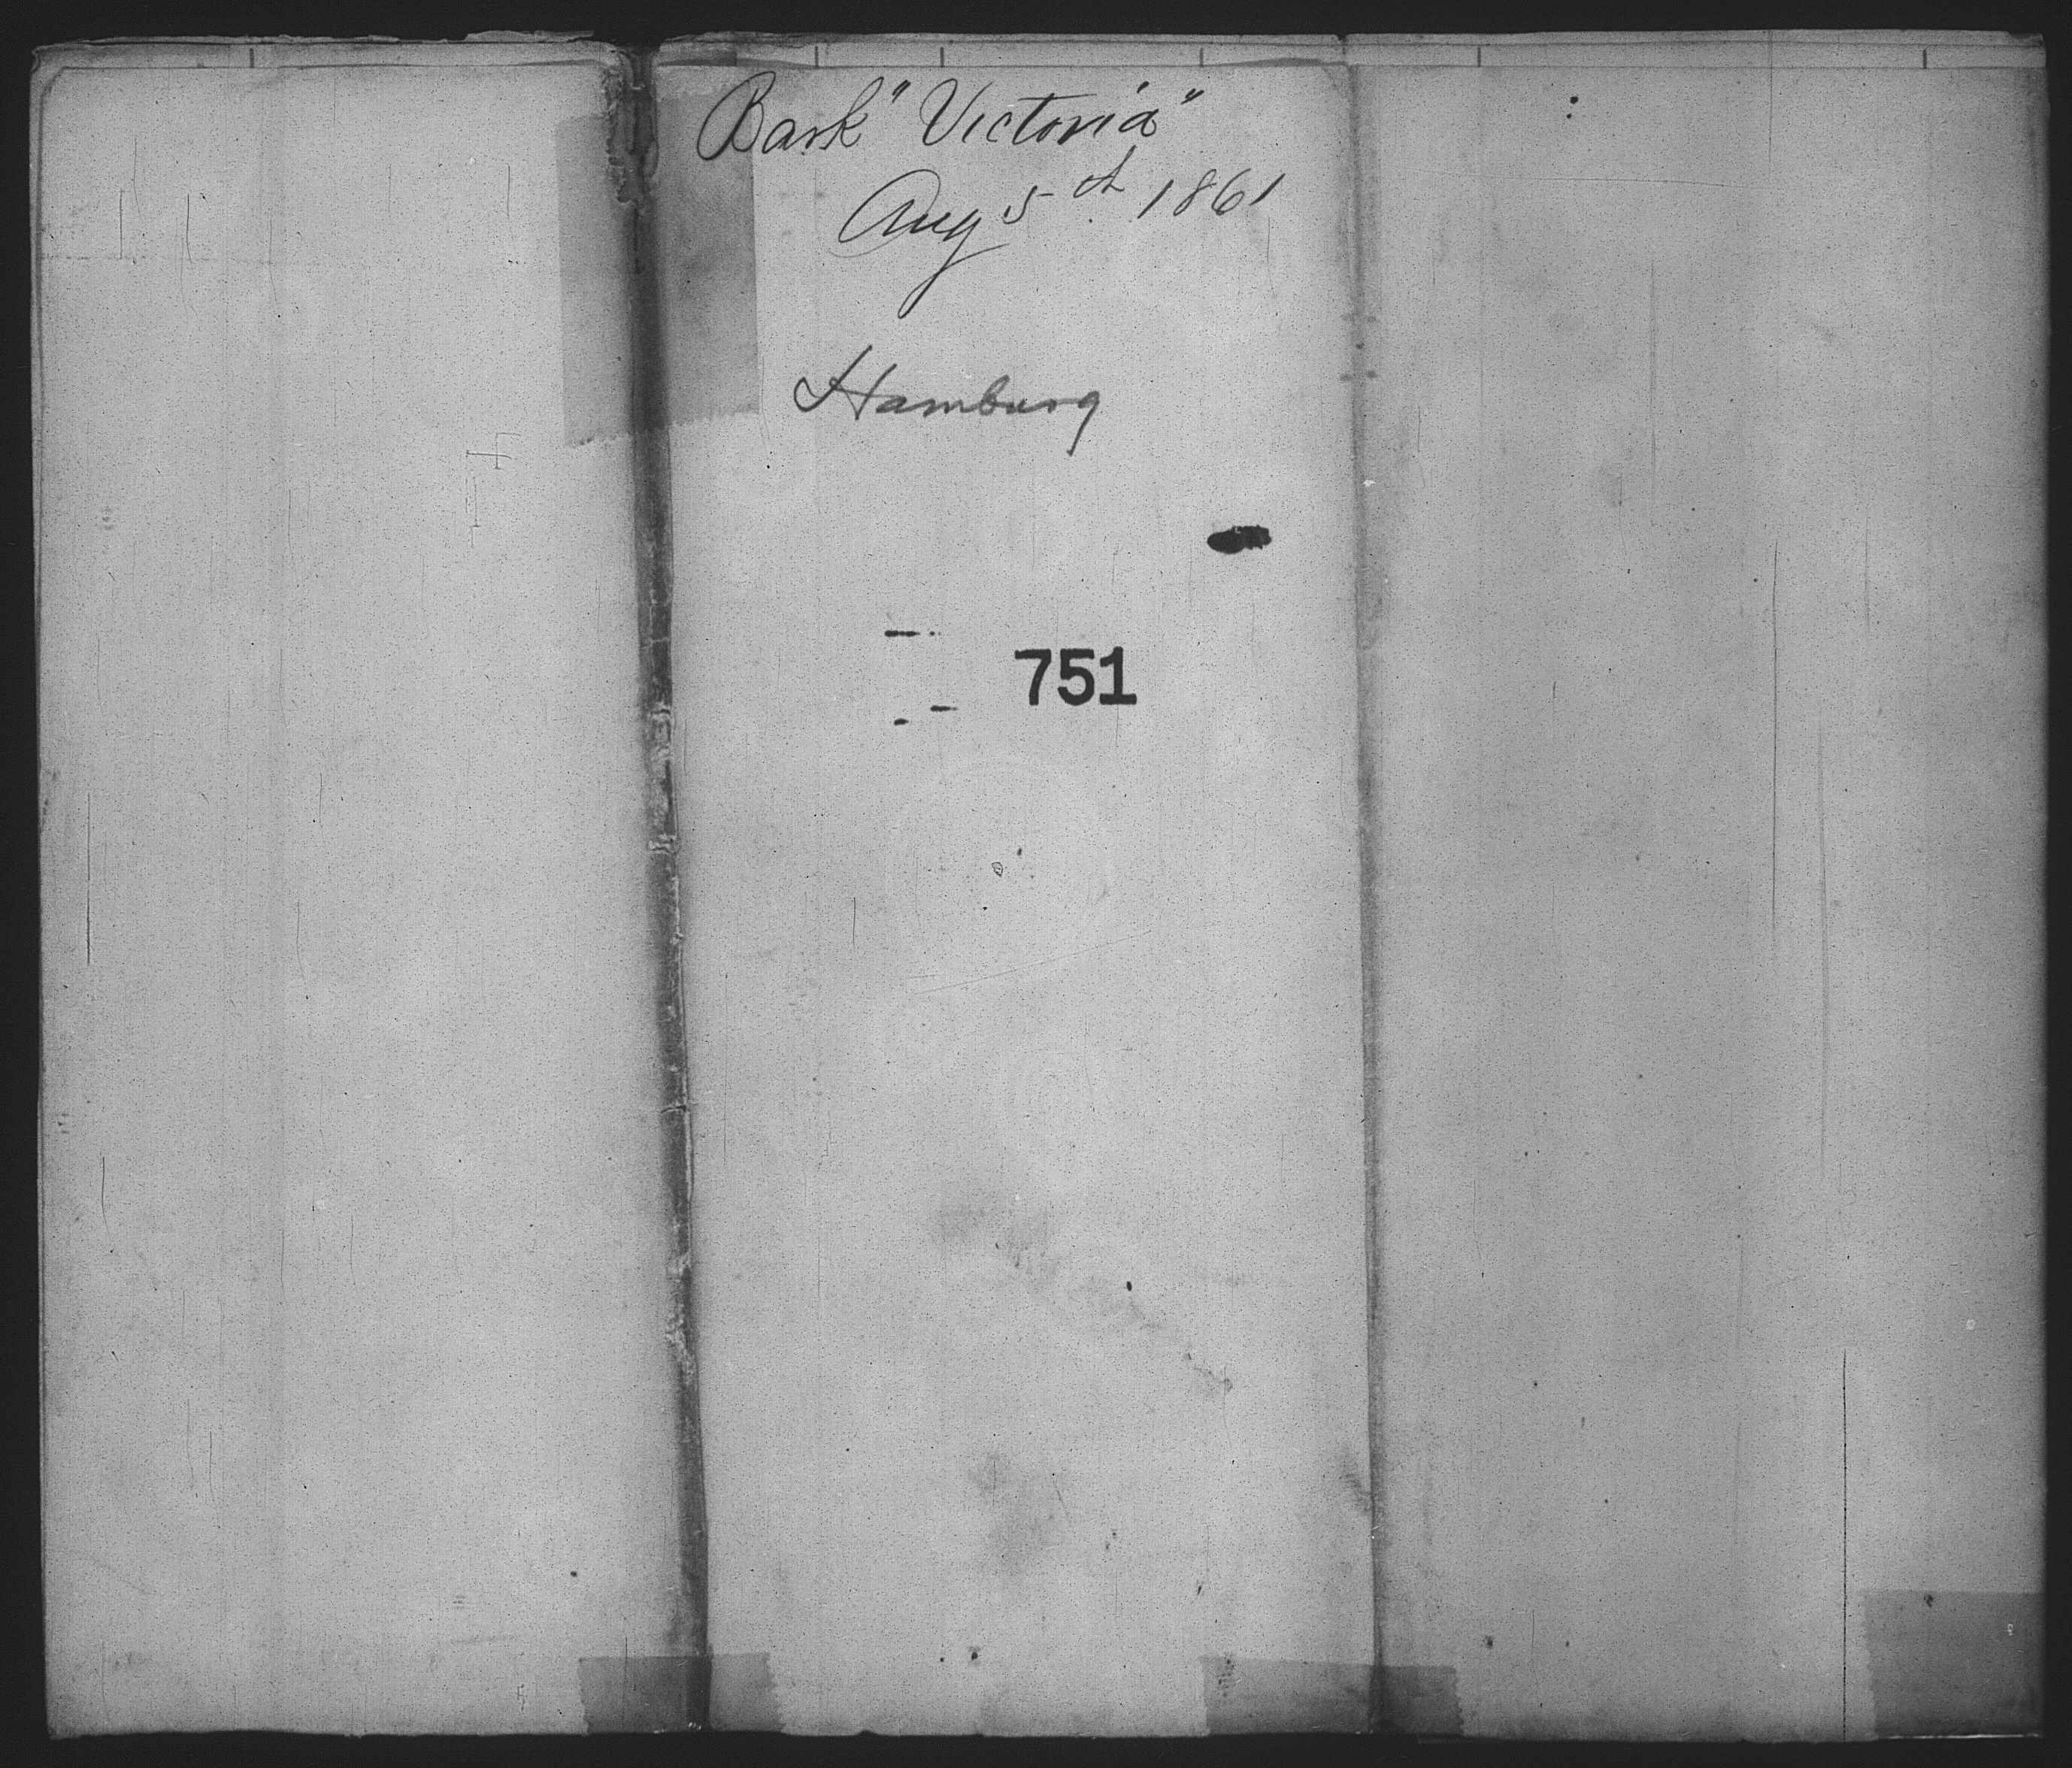 Bark "Victoria"
Aug 5th 1861
Hamburg
751